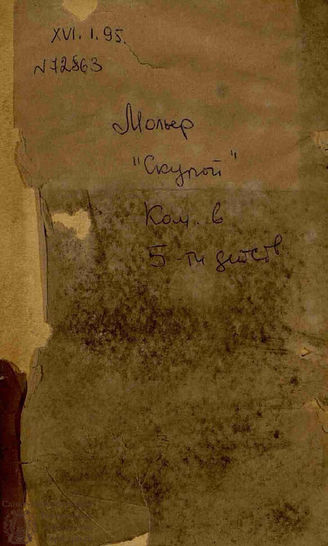 XVI. I. 95.
N72863
Мольер
"Скупой"
Ком. в
5-ти действ